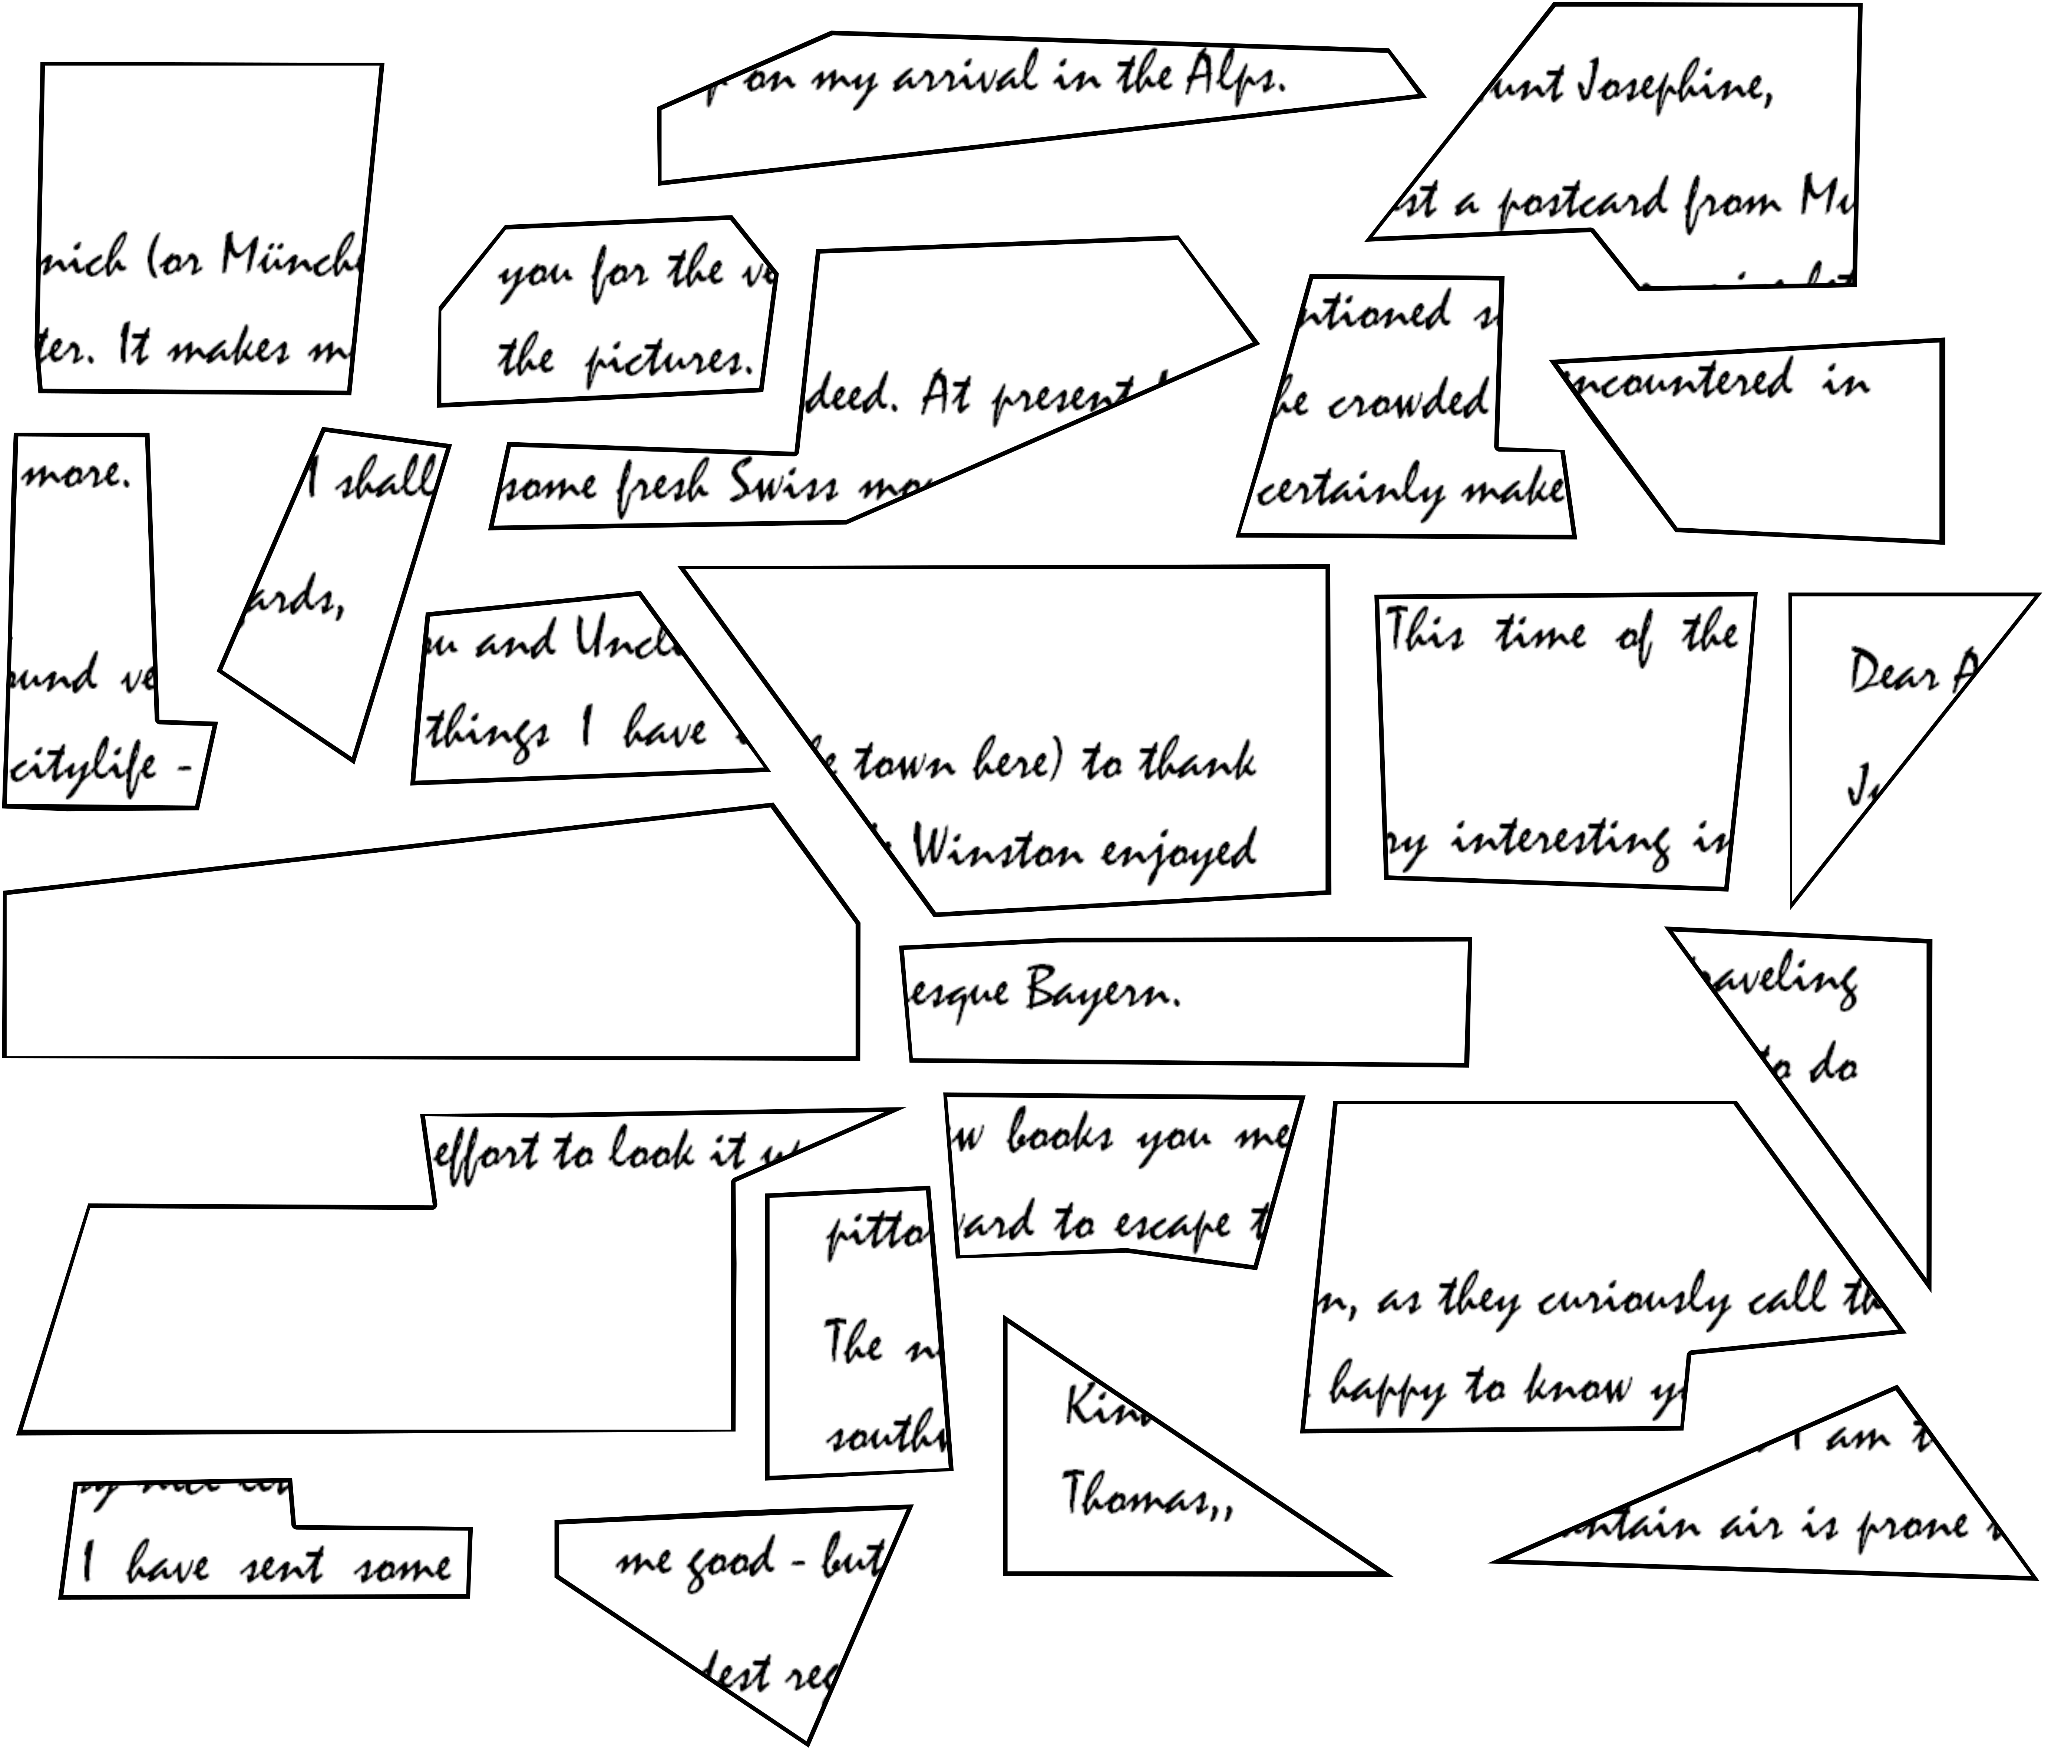 on my arrival in the Alps.
unt Josephine,
st a postcard from Mu
nich (or Münch
ter. It makes m
you for the ve
the pictures.
deed. At present
some fresh Swiss mo
ntioned s
he crowded
certainly make
ncountered in
more.
und ve
citylife -
I shall
ards,
u and Uncl
things I have
e town here) to thank
Winston enjoyed
This time of the
ry interesting in
Dear A
Ju
esque Bayern.
raveling
to do
effort to look it u
pitto
The n
southw
w books you me
ard to escape t
n, as they curiously call th
happy to know y
Kin
Thomas,,
I am t
ntain air is prone
ry nice let
I have sent some
me good - but
dest reg